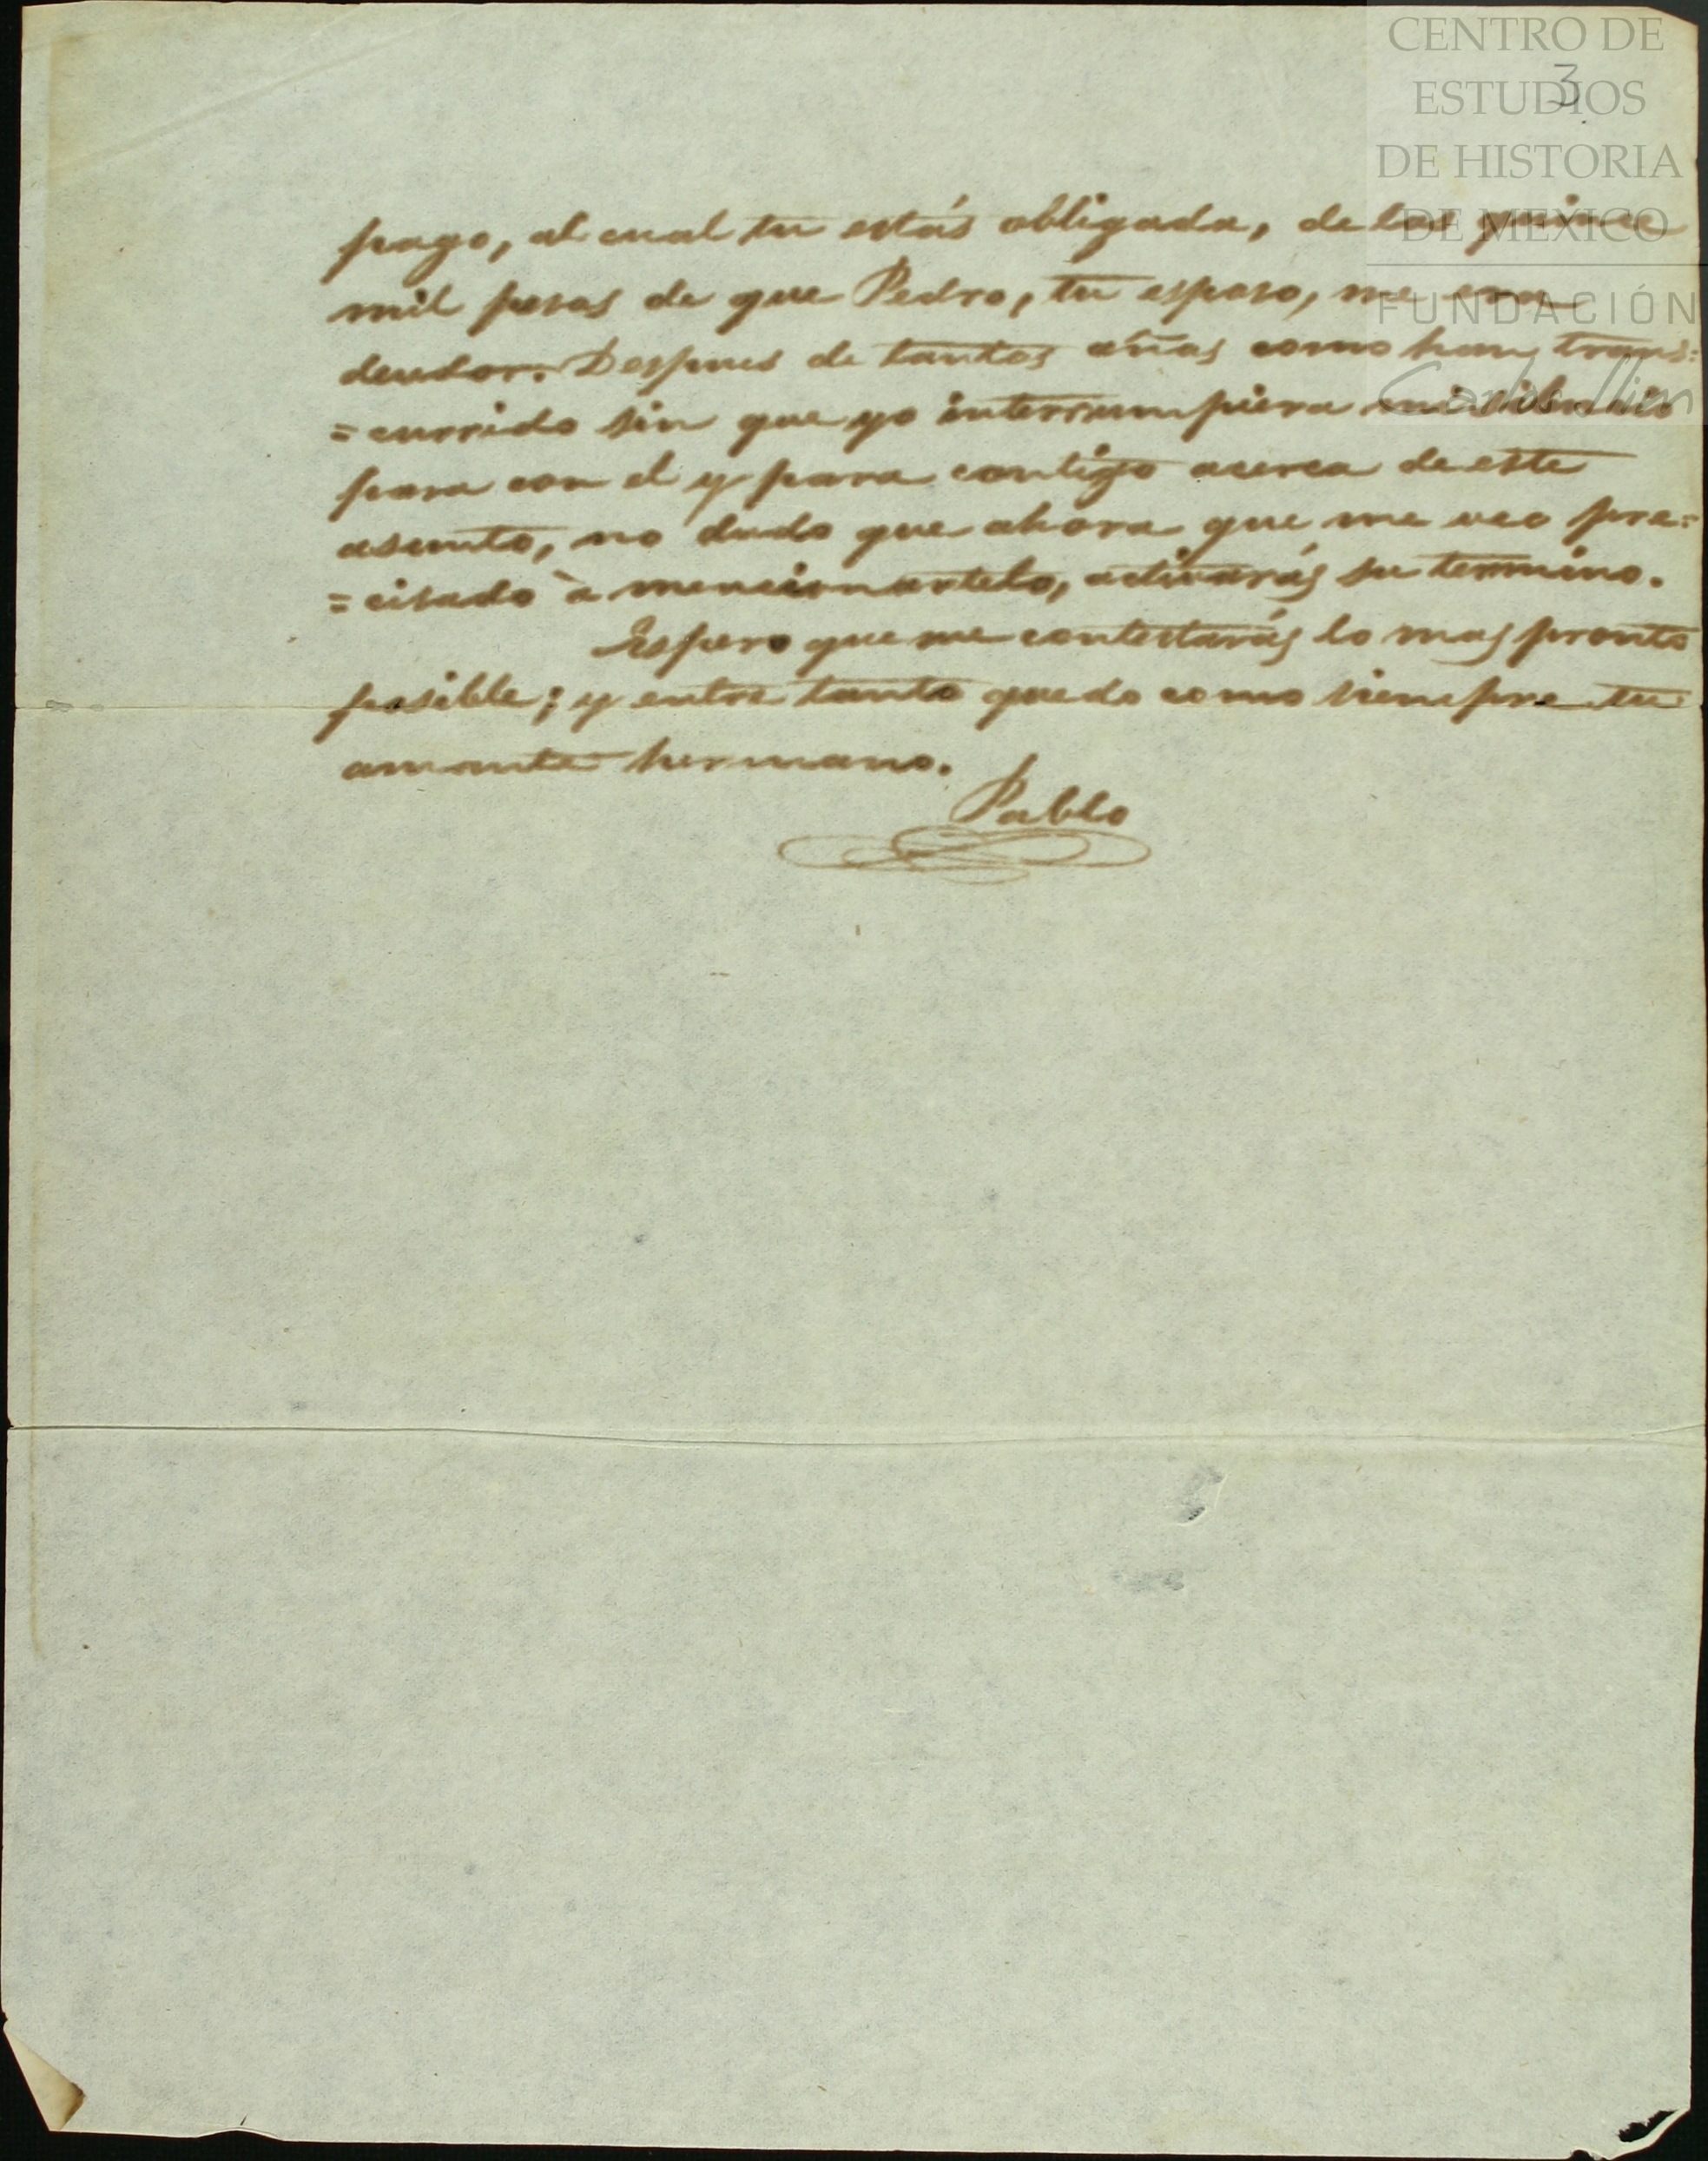 CENTRO DE
ESTUDIOS
DE HISTORIA
DE MÉXICO
FUNDACIÓN
Carlos Slim
3
pago, al cual tu estás obligada, de los quince
mil pesos de que Pedro, tu esposo, me era
deudor. Despues de tantos años como han trans=
=currido sin que yo interrumpiera mi silencio
para con el y para contigo acerca de este
asunto, no dudo que ahora que me veo pre=
=cisado à mencionartelo, activarás su termino.
Espero que me contestarás lo mas pronto
posible; y entre tanto quedo como siempre tu
amante hermano.
Pablo